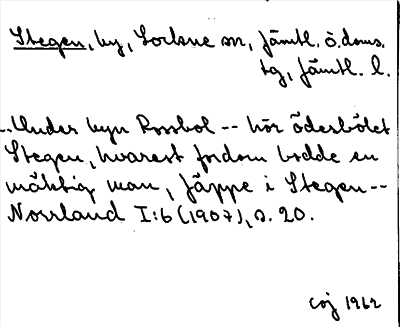 Stegen, by, Lockne sn, Jämtl. ö. doms.
tg, Jämtl. l.
--Under byn Rossbol -- hör ödesbölet
Stegen, hvarest fordom bodde en
mäktig man, Jäppe i Stegen --
Norrland I:6 (1907), s. 20.
CoJ 1962